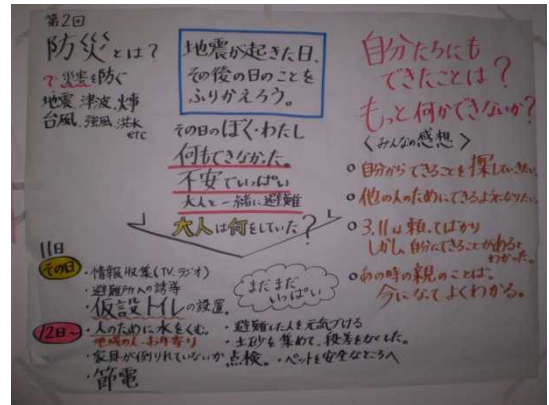 第2回
防災とは?
災害を防ぐ
地震、津波、火事
台風、強風、洪水
etc
地震が起きた日、
その後の日のことを
ふりかえろう。
その日のぼく・わたし
何もできなかった。
不安でいっぱい
大人と一緒に避難
大人は何をしていた?
11日
その日
・情報収集(TV、ラジオ)
・避難所への誘導
・仮設トイレの設置。
まだまだ
いっぱい
12日~
・人のために水をくむ。
地域の人・お年寄り
・家具が倒れていないか点検。
・節電
・避難した人を元気づける
・土砂を集めて、段差をなくした。
・ペットを安全なところへ
自分たちにも
できたことは?
もっと何かできないか?
〈みんなの感想〉
○自分からできることを探していきたい。
○他の人のためにできるようになりたい。
○3.11は頼ってばかり
しかし、自分にできることがあると
わかった。
○あの時の親のことば。
今になってよくわかる。